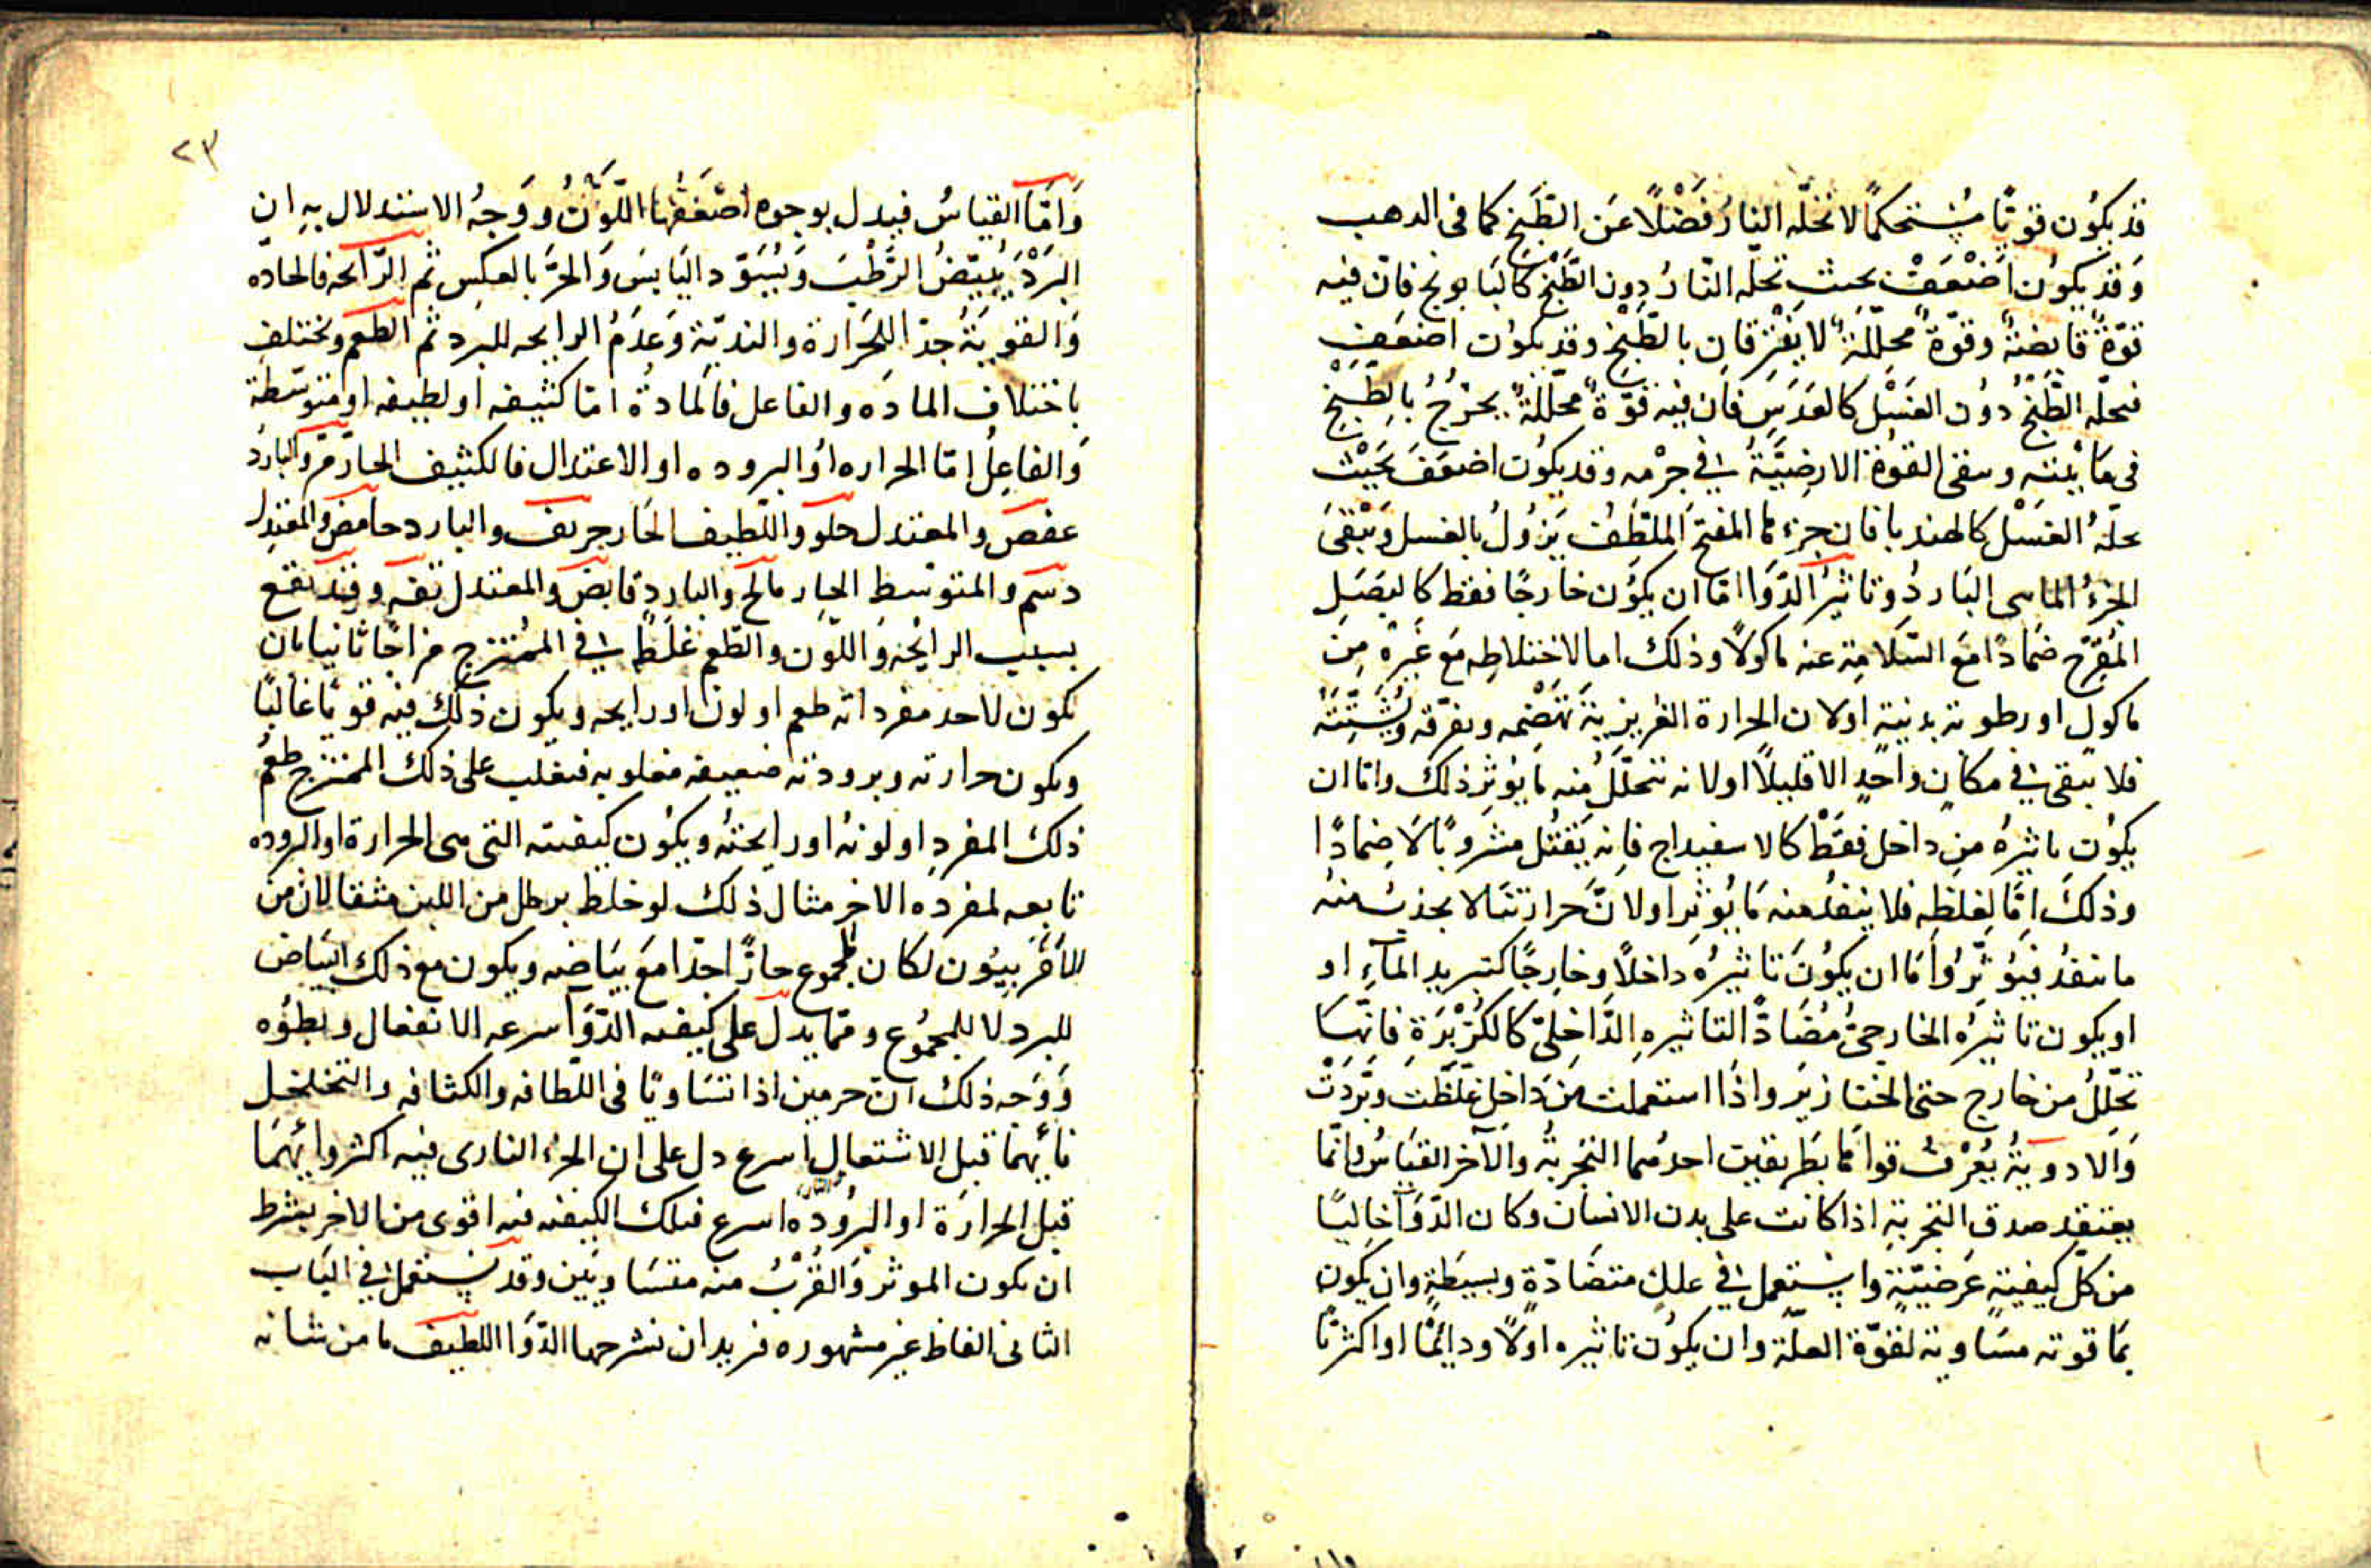 قد يكون قويًا مستحكمًا لا تحلّه النار فضلًا عن الطبخ كما فى الدهب
وقد يكون اضعف بحيث تحلّه النار دون الطبخ كالبابونج فان فيه
قوّة قابضة وقوّة محلّلة لا يفترقان بالطبخ وقد يكون اضعف
فتحلّه الطبخ دون الغسل كالعدس فان فيه قوّة محلّلة يخرج بالطبخ
فى مائيته وسقى القوة الارضيّة فى جرمه وقد يكون اضعف بحيث
يحلّه الغسل كالهندبا فان جزءها المفتح الملطف يزول بالغسل ويبقى
الجزء الماسى البارد وتاثير الدّوا امّا ان يكون خارجًا فقط كالبصل
المقرّح ضمادًا مع السّلامة عنه ماكولًا وذلك اما لاختلاطه مع غيره من
ماكول او رطوبة بدنية او لان الحرارة الغريزية تهضمه وتفرّقه وتشتّته
فلا تبقى فى مكان واحد الا قليلًا او لانه تتحلّل منه ما يوثر ذلك واما ان
يكون تاثيره من داخل فقط كالاسفيداج فانه يقتل مشروبًا لا ضمادًا
وذلك امّا لغلظه فلا ينفذ منه ما يوثر او لانّ حرارتنا لا تجذب منه
ما ينفذ فيوثّر وامّا ان يكون تاثيره داخلًا وخارجًا كتبريد المآء او
او يكون تاثيره الخارجىّ مضادًّا لتاثيره الدّاخلىّ كالكزبرة فانّها
تحلّل من خارج حتى الخنازير واذا استعملت من داخل غلّظت وبرّدت
والادوية يعرف قواها بطريقين احدهما التجربة والآخر القياس وانّما
يعتقد صدق التجربة اذا كانت على بدن الانسان وكان الدّوآ خاليًا
من كلّ كيفيّة عرضيّة واستعمل فى علل متضادّة وبسيطة وان يكون
بما قوته مساوية لقوّة العلّة وان يكون تاثيره اوّلًا ودائمًا او اكثريًا
٢٣
وامّا القياس فيدل بوجوه اضعفها اللّون ووجه الاستدلال به ان
البرد يبيّض الرّطب ويسوّد اليابس والحرّ بالعكس ثم الرّائحه فالحادّه
والقويّة جدّا للحرارة والنديّة وعدم الرايحه للبرد ثم الطعم ويختلف
باختلاف المادّه والفاعل فالمادّة امّا كثيفه او لطيفه او متوسّطة
والفاعل امّا الحراره او البروده او الاعتدال فالكثيف الحارّ مرّ والبارد
عفص والمعتدل حلو واللّطيف الحار حريف والبارد حامض والمعتدل
دسم والمتوسط الحار مالح والبارد قابض والمعتدل تفه وقد تقع
بسبب الرايحه واللّون والطّعم غلط فى الممتزج مزاجًا ثانيا بان
يكون لاحد مفرداته طعم او لون او رايحه ويكون ذلك فيه قويًا غالبًا
ويكون حرارته وبرودته ضعيفه مغلوبه فيغلب على ذلك الممتزج طعم
ذلك المفرد او لونه او رايحته ويكون كيفيته التى هى الحرارة او البروده
تابعه لمفرده الاخر مثال ذلك لو خلط برطل من اللبن مثقالان من
الافربيون لكان المجموع حارًّا جدّا مع بياضه ويكون مع ذلك البياض
للبرد لا للمجموع وممّا يدل على كيفيه الدّوآ سرعه الانفعال وبطؤه
ووجه ذلك انّ جرمين اذا تساويا فى اللّطافه والكثافه والتخلخل
فايّهما قبل الاشتعال اسرع دل على ان الجزء النارى فيه اكثر وايّهما
قبل الحرارة او البروده اسرع فتلك الكيفيه فيه اقوى من الاخر بشرط
ان يكون الموثر والقرب منه متساويين وقد يستعمل فى الباب
الثانى الفاظ غير مشهوره فنريد ان نشرحها الدّوا اللطيف ما من شانه